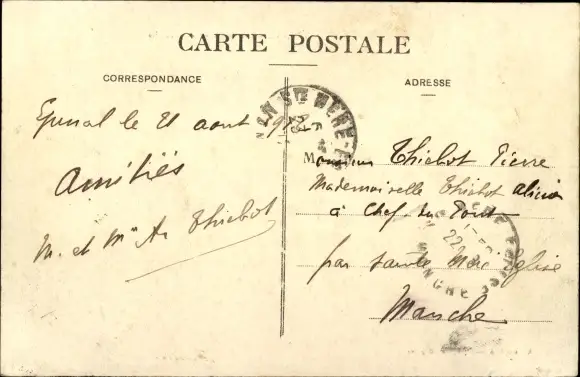 CARTE POSTALE
CORRESPONDANCE
ADRESSE
Epinal le 21 aout
Amitiés
M. et Mme A. Thiebot
Monsieur Thiebot Pierre
Mademoiselle Thiebot
à Chef du Pont
par Sainte Mère Eglise
Manche
STE MERE-E
22